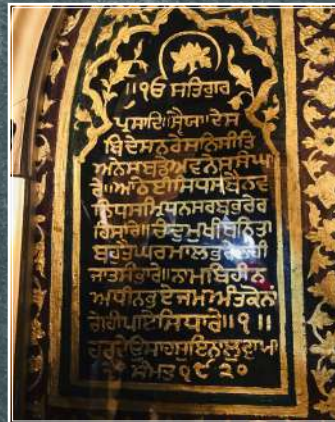 ॥ ੴ ਸਤਿਗੁਰ
ਪ੍ਰਸਾਦਿ ॥ ਸ੍ਵੈਯਾ ॥ ਦੇਸ
ਬਿਦੇਸ ਨਰੇਸਨ ਜੀਤਿ
ਅਨੇਸ ਬਡੇ ਅਵਨੇਸ ਸੰਘਾ
ਰੇ ॥ ਆਠੋ ਈ ਸਿਧ ਸਬੈ ਨਵ
ਨਿਧ ਸਮ੍ਰਿਧਨ ਸਰਬ ਭਰੇ ਗ੍ਰ
ਹਿ ਸਾਰੇ ॥ ਚੰਦ੍ਰਮੁਖੀ ਬਨਿਤਾ
ਬਹੁਤੈ ਘਰ ਮਾਲ ਭਰੇ ਨਹੀ
ਜਾਤ ਸੰਭਾਰੇ ॥ ਨਾਮ ਬਿਹੀਨ
ਅਧੀਨ ਭਏ ਜਮ ਅੰਤ ਕੋ ਨਾ
ਗੇ ਹੀ ਪਾਇ ਸਿਧਾਰੇ ॥ ੧ ॥
ਸੰਮਤ ੧੯੨੦